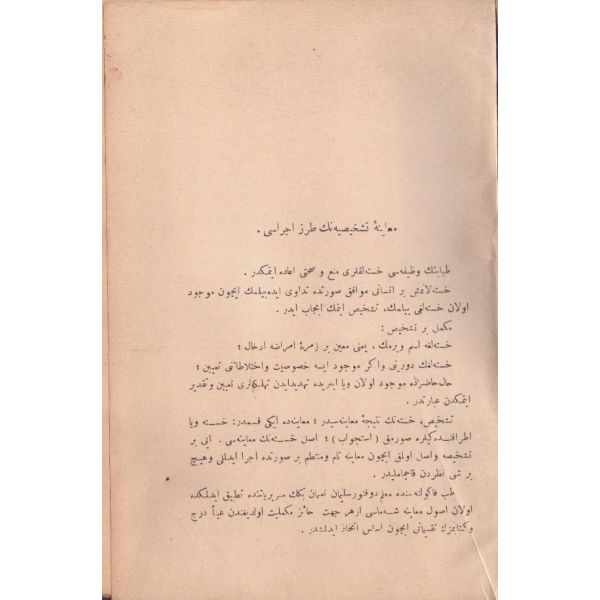 معاینهٔ تشخیصیه‌نك طرز اجراسی .
طبابتك وظیفه‌سی خسته‌لقلری منع و صحتی اعاده ایتمكدر .
خسته‌لانمش بر انسانی موافق صورتده تداوی ایده‌بیلمك ایچون موجود
اولان خسته‌لغی بیلمك، تشخیص ایتمك ایجاب ایدر .
مكمل بر تشخیص :
خسته‌لغه اسم ویرمك ، یعنی معین بر زمرهٔ امراضه ادخال ؛
خسته‌لغك دورینی واكر موجود ایسه خصوصیت واختلاطاتنی تعیین ؛
حال حاضرده موجود اولان ویا ایلریده تهدیدایدن تهلكه‌لری تعیین وتقدیر
ایتمكدن عبارتدر .
تشخیص، خسته‌نك نتیجهٔ معاینه‌سیدر ؛ معاینه‌ده ایكی قسمدر : خسته ویا
اطرافنده‌كیلره صورمق ( استجواب ) ؛ اصل خسته‌نك معاینه‌سی . ایی بر
تشخیصه واصل اولمق ایچون معاینه تام ومنتظم بر صورتده اجرا ایدلملی وهیچ
بر شی نظردن قاچماملیدر .
طب فاكولته‌سنده معلم دوقتور سلیمان نعمان بكك سریریاتنده تطبیق ایدلمكده
اولان اصول معاینه شماسی ازهر جهت حائز مكملیت اولدیغندن عیناً درج
وكتابمزك تقسیماتی ایچون اساس اتخاذ ایدلمشدر .